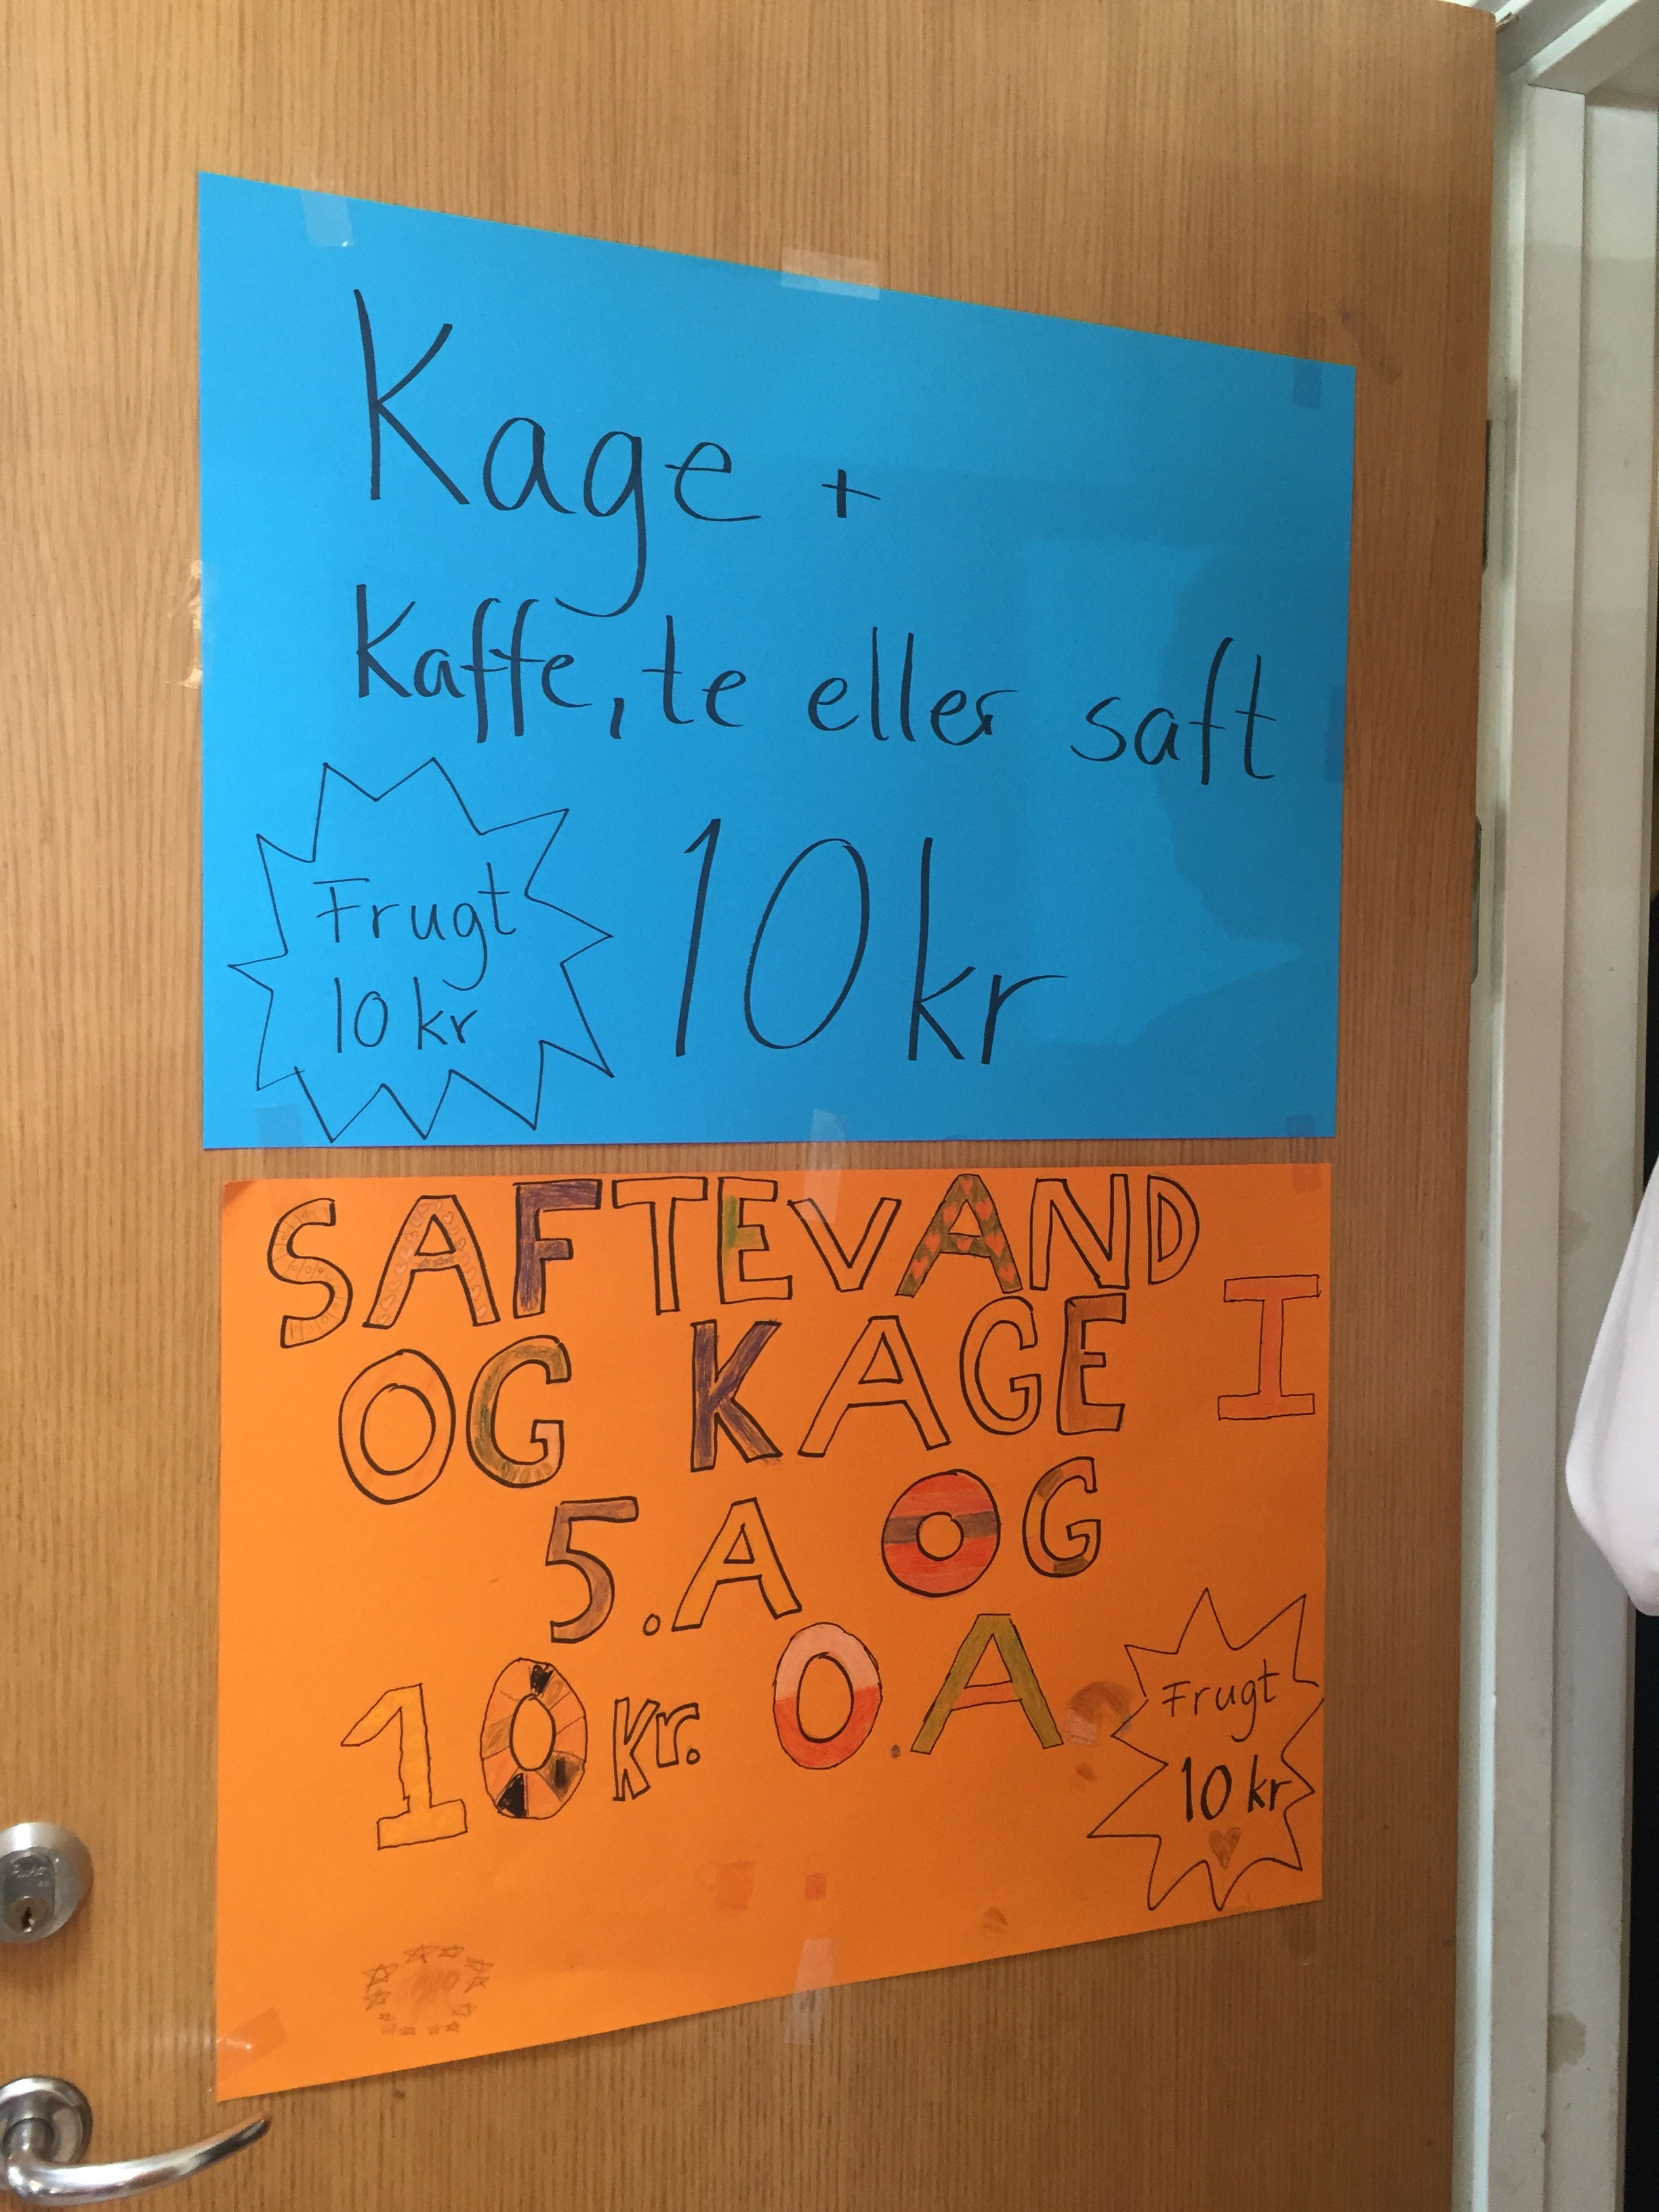 Kage +
Kaffe, te eller saft
10 kr
Frugt
10 kr
SAFTEVAND
OG KAGE I
5.A OG
0.A
10 kr.
Frugt
10 kr